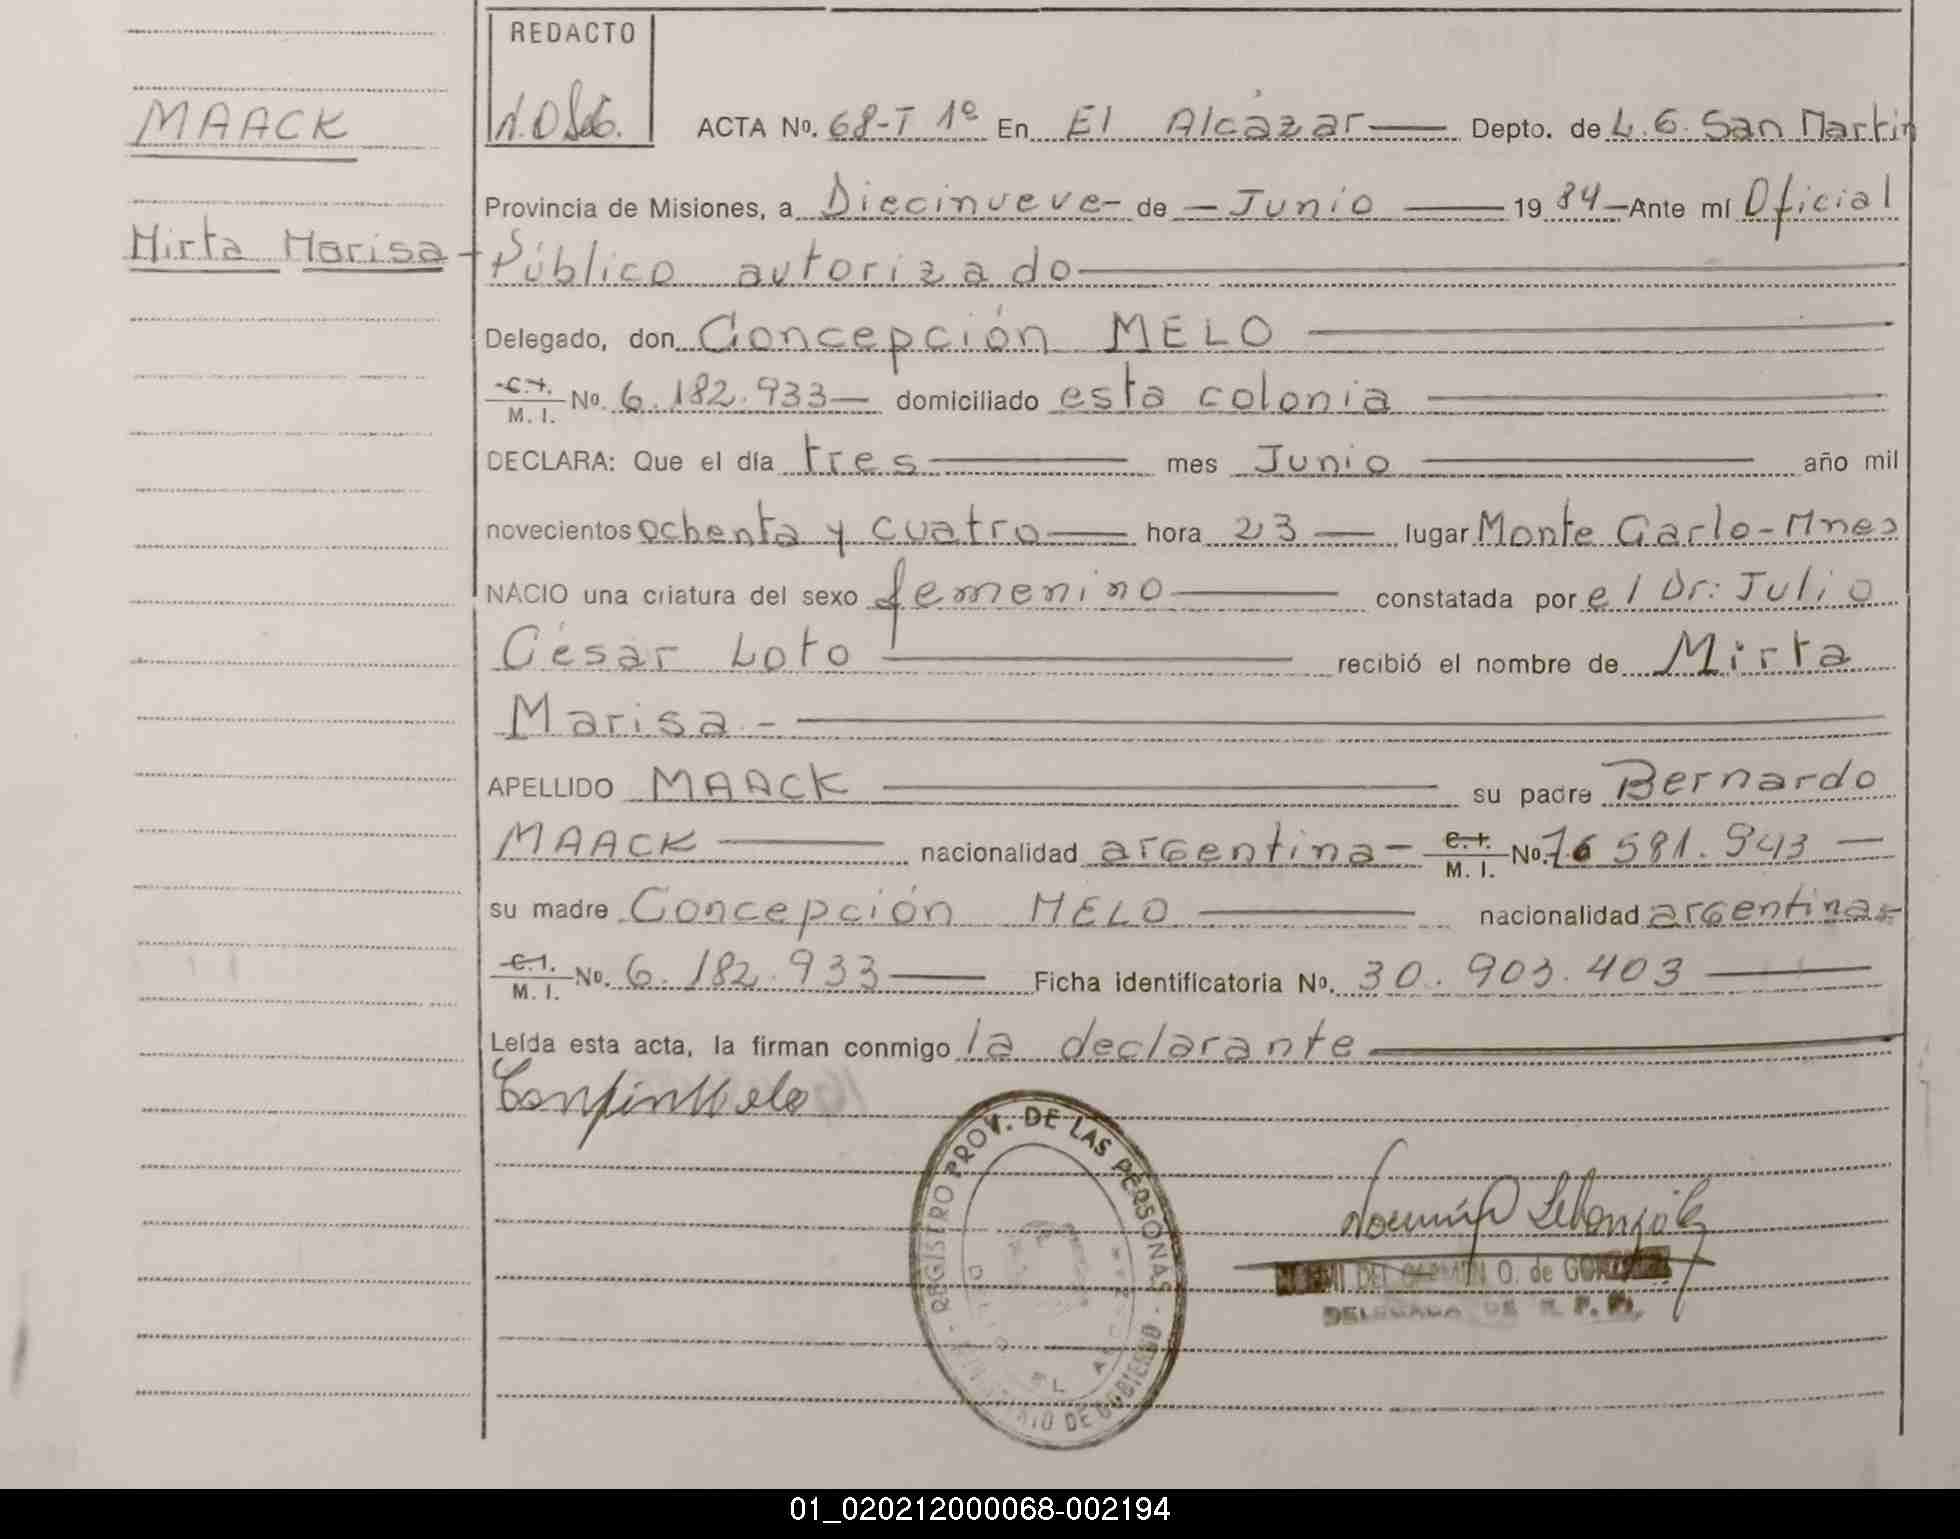 REDACTO
MAACK
Mirta Marisa
ACTA Nº. 68-T 1º En El Alcázar Depto. de L. G. San Martin
Provincia de Misiones, a Diecinueve de Junio 1984 Ante mí Oficial
Público autorizado
Delegado, don Concepción MELO
C.I. M. I. Nº. 6.182.933 domiciliado esta colonia
DECLARA: Que el día tres mes Junio año mil
novecientos ochenta y cuatro hora 23 lugar Monte Carlo-Mnes
NACIO una criatura del sexo femenino constatada por el Dr: Julio
César Loto recibió el nombre de Mirta
Marisa.-
APELLIDO MAACK su padre Bernardo
MAACK nacionalidad argentina C.I. M. I. Nº. 581.943
su madre Concepción MELO nacionalidad argentina
C.I. M. I. Nº. 6.182.933 Ficha identificatoria Nº. 30.903.403
Leída esta acta, la firman conmigo la declarante
REGISTRO PROV. DE LAS PERSONAS - MINISTERIO DE GOBIERNO
DEL CARMEN O. de
DELEGADA DE R. P. P.
01_020212000068-002194